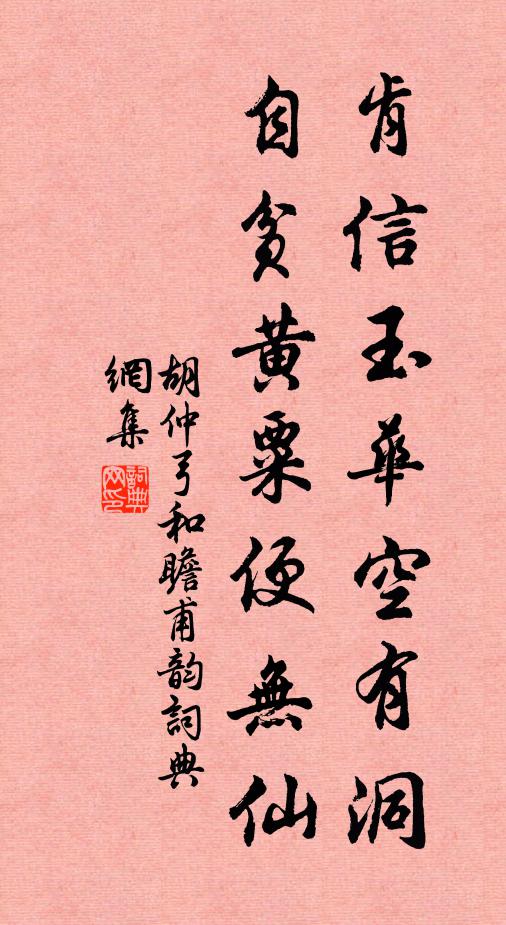 肯信玉華空有洞
自貧黃粟便無仙
胡仲弓和瞻甫韵詞典
網集
詞典網印